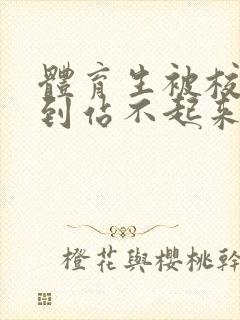 體育生被校
到佔不起來
橙花與櫻桃幹